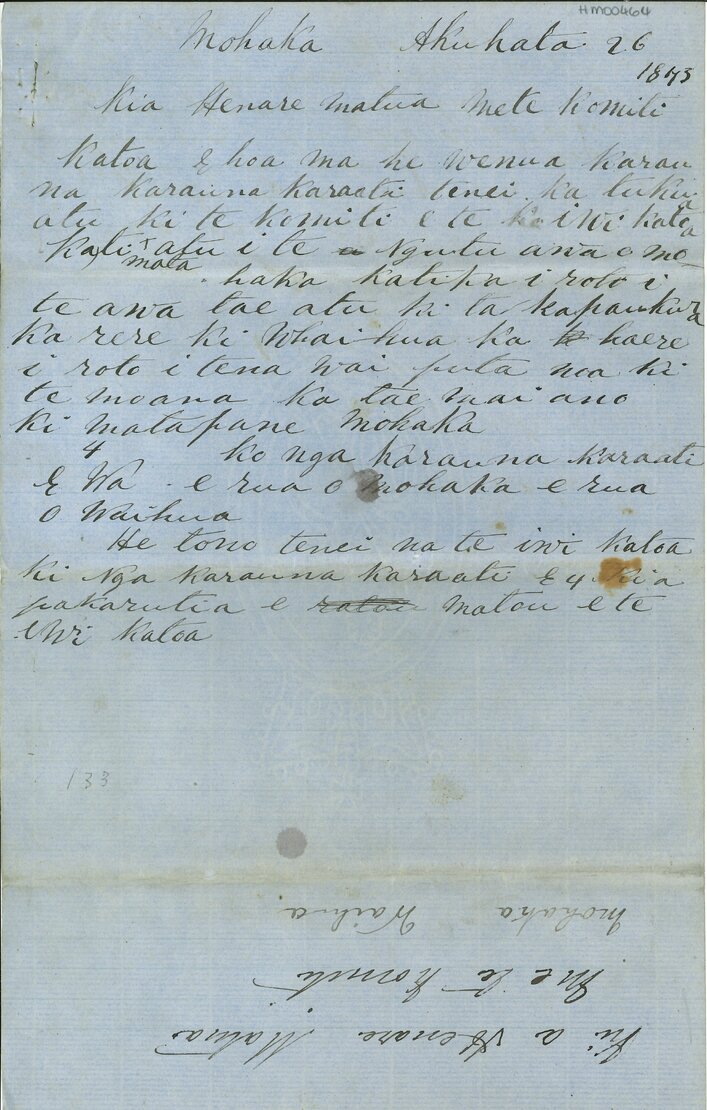 HM00464
Mohaka Akuhata 26
1873
Kia Henare matua mete Komiti
Katoa E hoa ma he wenua Karau
na Karauna Karaati tenei ka tukua
atu ki te komiti e te iwi katoa
Kati mata atu i te Ngutu awa o mo
haka katipa i roto i
te awa tae atu ki ta kapaukura
ka rere ki Whaihua ka haere
i roto i tena wai puta noa ki
te moana ka tae mai ano
ki matapane Mohaka
4 ko nga karauna karaati
E Wa - e rua o Mohaka e rua
o Waihua
He tono tenei na te iwi katoa
ki Nga karauna karaati E 4 kia
pakarutia e ratou matou e te
iwi katoa
133
Ki a Henare Matua
Me te Komiti
Mohaka Waihua